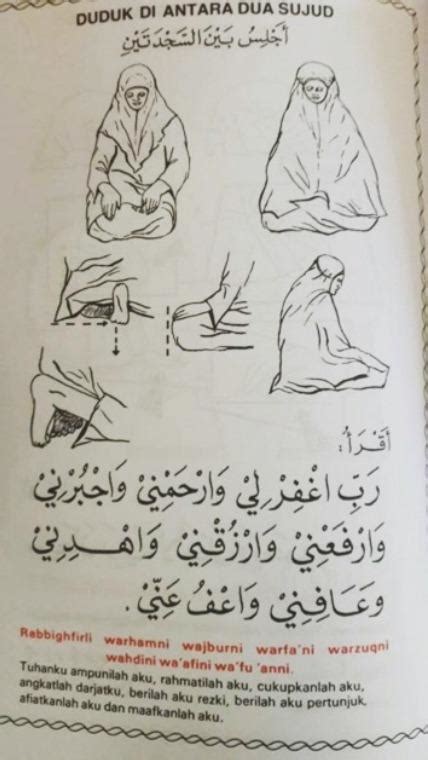 DUDUK DI ANTARA DUA SUJUD
أَجْلِسُ بَيْنَ السَّجْدَتَيْنِ
أَقْرَأُ:
رَبِّ اغْفِرْلِيْ وَارْحَمْنِيْ وَاجْبُرْنِيْ
وَارْفَعْنِيْ وَارْزُقْنِيْ وَاهْدِنِيْ
وَعَافِنِيْ وَاعْفُ عَنِّيْ.
Rabbighfirli warhamni wajburni warfa'ni warzuqni
wahdini wa'afini wa'fu 'anni.
Tuhanku ampunilah aku, rahmatilah aku, cukupkanlah aku,
angkatlah darjatku, berilah aku rezki, berilah aku pertunjuk,
afiatkanlah aku dan maafkanlah aku.